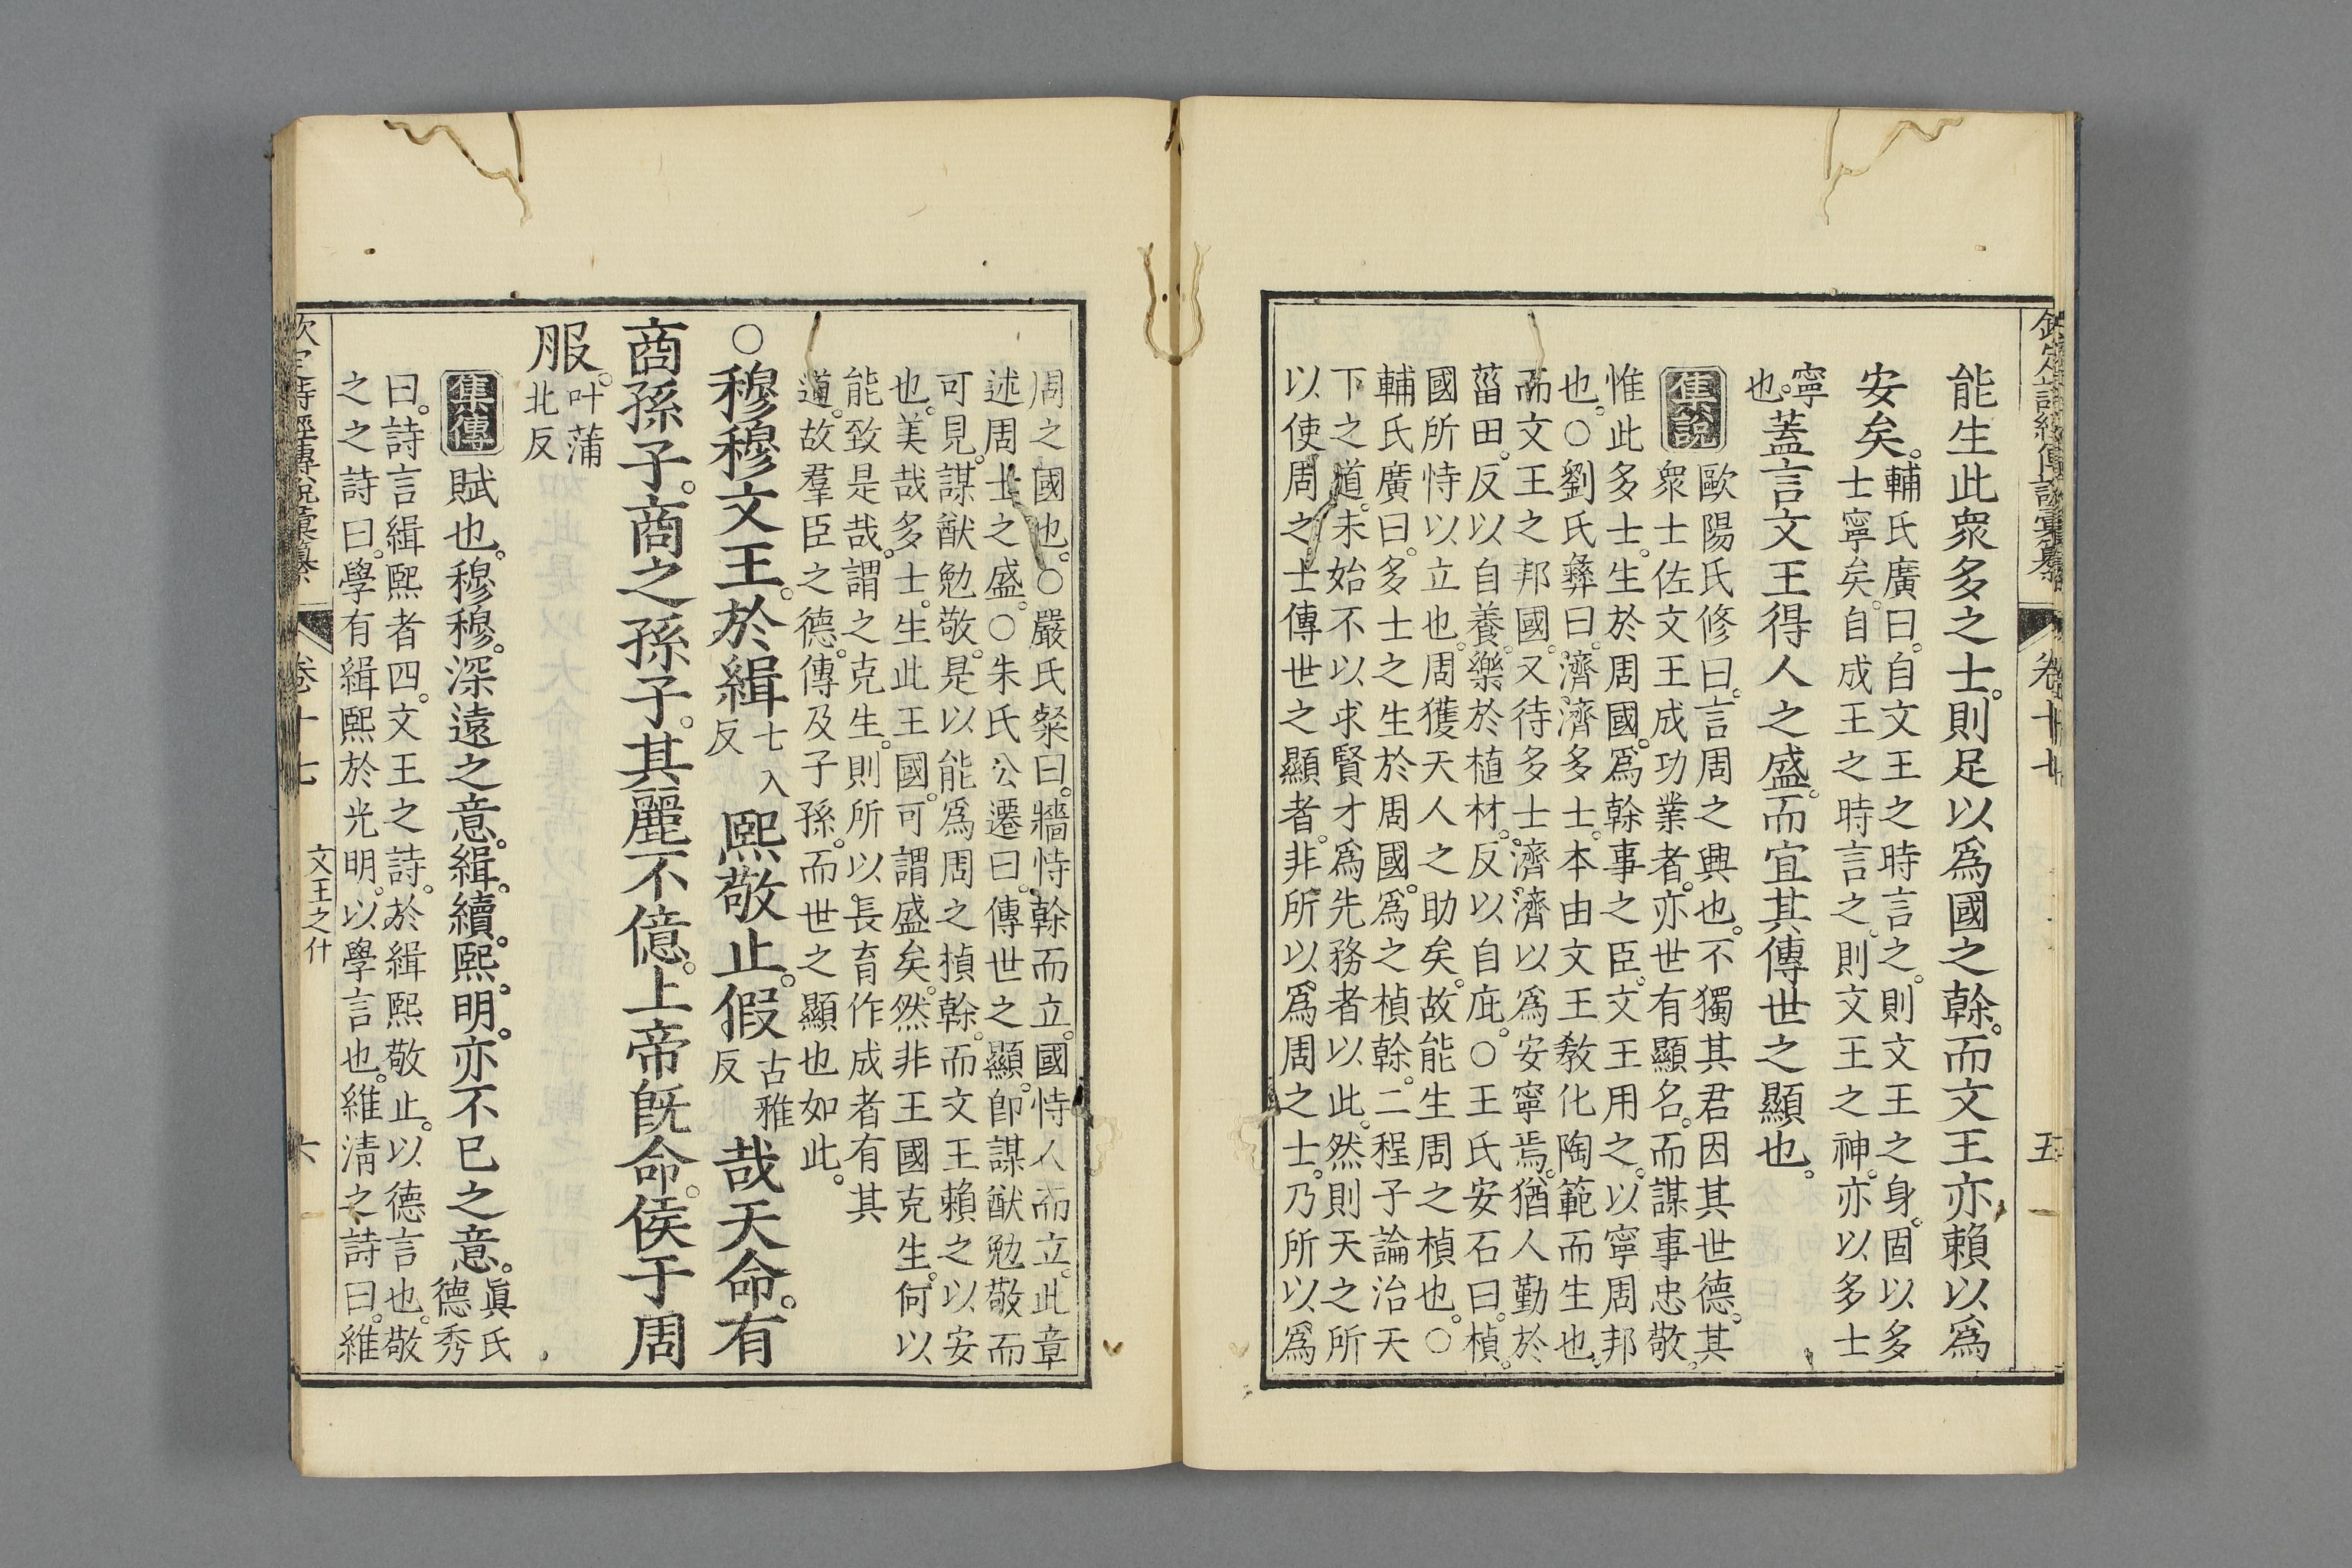 欽定詩經傳說彙纂 卷十七 五
能生此衆多之士。則足以爲國之榦。而文王亦賴以爲
安矣。輔氏廣曰。自文王之時言之。則文王之身。固以多
士寧矣。自成王之時言之。則文王之神。亦以多士
寧也。蓋言文王得人之盛。而宜其傳世之顯也。
集說 歐陽氏修曰。言周之興也。不獨其君因其世德。其
衆士佐文王成功業者。亦世有顯名。而謀事忠敬。
惟此多士。生於周國。爲榦事之臣。文王用之。以寧周邦
也。○劉氏彝曰。濟濟多士。本由文王敎化陶範而生也。
而文王之邦國。又待多士濟濟以爲安寧焉。猶人勤於
菑田。反以自養。樂於植材。反以自庇。○王氏安石曰。楨。
國所恃以立也。周獲天人之助矣。故能生周之楨也。○
輔氏廣曰。多士之生於周國。爲之楨榦。二程子論治天
下之道。未始不以求賢才爲先務者以此。然則天之所
以使周之士傳世之顯者。非所以爲周之士。乃所以爲
周之國也。○嚴氏粲曰。牆恃榦而立。國恃人而立。此章
述周士之盛。○朱氏公遷曰。傳世之顯。卽謀猷勉敬而
可見。謀猷勉敬。是以能爲周之楨榦。而文王賴之以安
也。美哉多士。生此王國。可謂盛矣。然非王國克生。何以
能致是哉。謂之克生。則所以長育作成者有其
道。故羣臣之德。傳及子孫。而世之顯也如此。
○穆穆文王。於緝七入反熙敬止。假古雅反哉天命。有
商孫子。商之孫子。其麗不億。上帝旣命。侯于周
服。叶蒲北反
集傳 賦也。穆穆。深遠之意。緝。續。熙。明。亦不已之意。眞氏德秀
曰。詩言緝熙者四。文王之詩。於緝熙敬止。以德言也。敬
之之詩曰。學有緝熙於光明。以學言也。維淸之詩曰。維
欽定詩經傳說彙纂 卷十七 文王之什 六